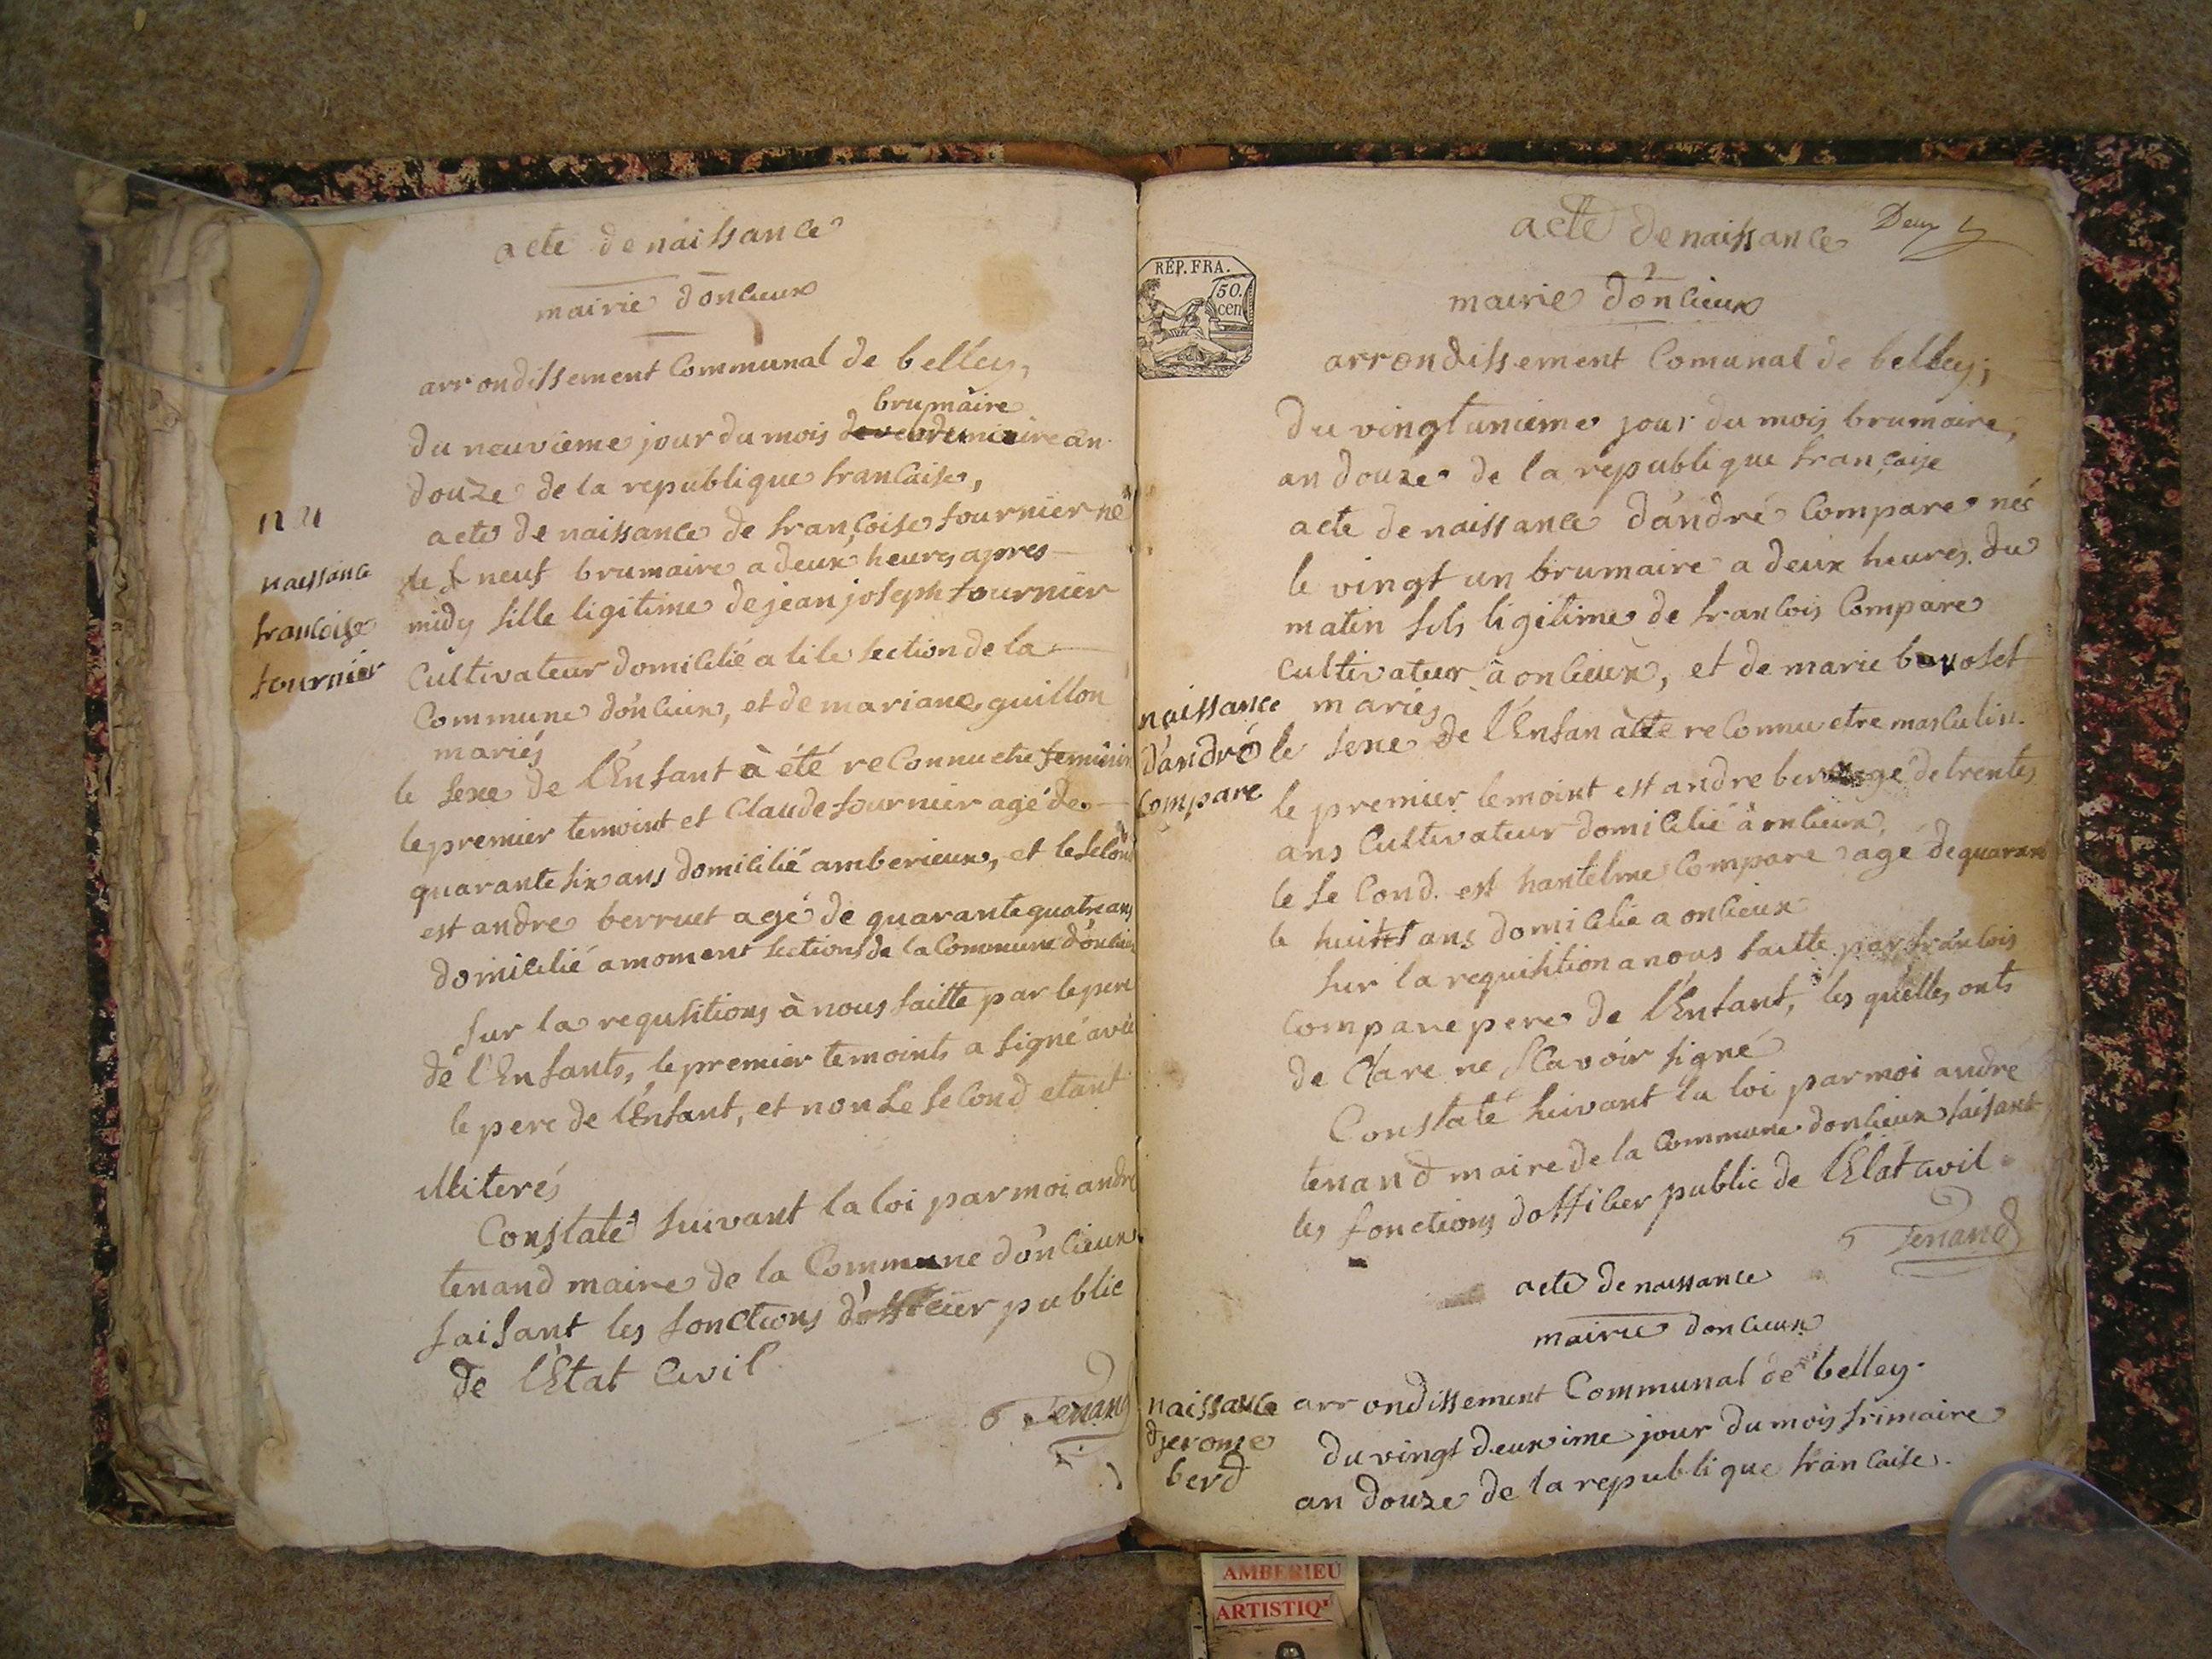 acte de naissance
mairie d'onlieux
arrondissement Communal de belley,
brumaire
du neuvieme jour du mois de vendemiaire an
douze de la republique francaise,
n
acte de naissance de françoise fournier né
naissance
le neuf brumaire a deux heures apres
francoise
midy fille ligitime de jean joseph fournier
fournier
Cultivateur domicilié a lile section de la
Commune d'onlieux, et de mariane guillon
mariés
le sexe de l'Enfant à été reconnu etre feminin
le premier temoint et Claude fournier agé de
quarante six ans domicilié amberieux, et le second
est andre berruet agé de quarante quatre ans
domicilié a moment sections de la Commune d'onlieux
sur la requsitions à nous faitte par le pere
de l'Enfants, le premier temoints a signé avec
le pere de l'Enfant, et non le second etant
illiterés
Constaté suivant la loi par moi andré
tenand maire de la Commune d'onlieux
faisant les fonctions d'officier public
de l'Etat Civil
Tenand
acte de naissance
Deux
RÉP. FRA.
50.
cen
mairie d'onlieux
arrondissement Comunal de belley;
Du vingt unieme jour du mois brumaire,
an douze de la republique française
acte de naissance d'andré Compare néé
le vingt un brumaire a deux heures du
matin fils ligitime de francois Compare
Cultivateur à onlieux, et de marie
mariés
naissance
d'andré
Compare
le sexe de l'Enfan a été reconnu etre masculin.
le premier temoint est andre agé de trentes
ans Cultivateur domicilié à onlieux,
le second. est hantelme Compare agé de quaran
te huit ans domicilié a onlieux
sur la requisition a nous faitte par francois
Compare pere de l'Enfant, les quelles onts
de Clare ne scavoir signé
Constaté suivant la loi par moi andré
tenand maire de la Commune donlieux faisant
les fonctions dofficier public de l'Etat civil
Tenand
acte de naissance
mairie donlieux
naissance
djerome
berd
arrondissement Communal de belley.
du vingt deuxime jour du mois frimaire
an douze de la republique francaise.
AMBERIEU
ARTISTIQ